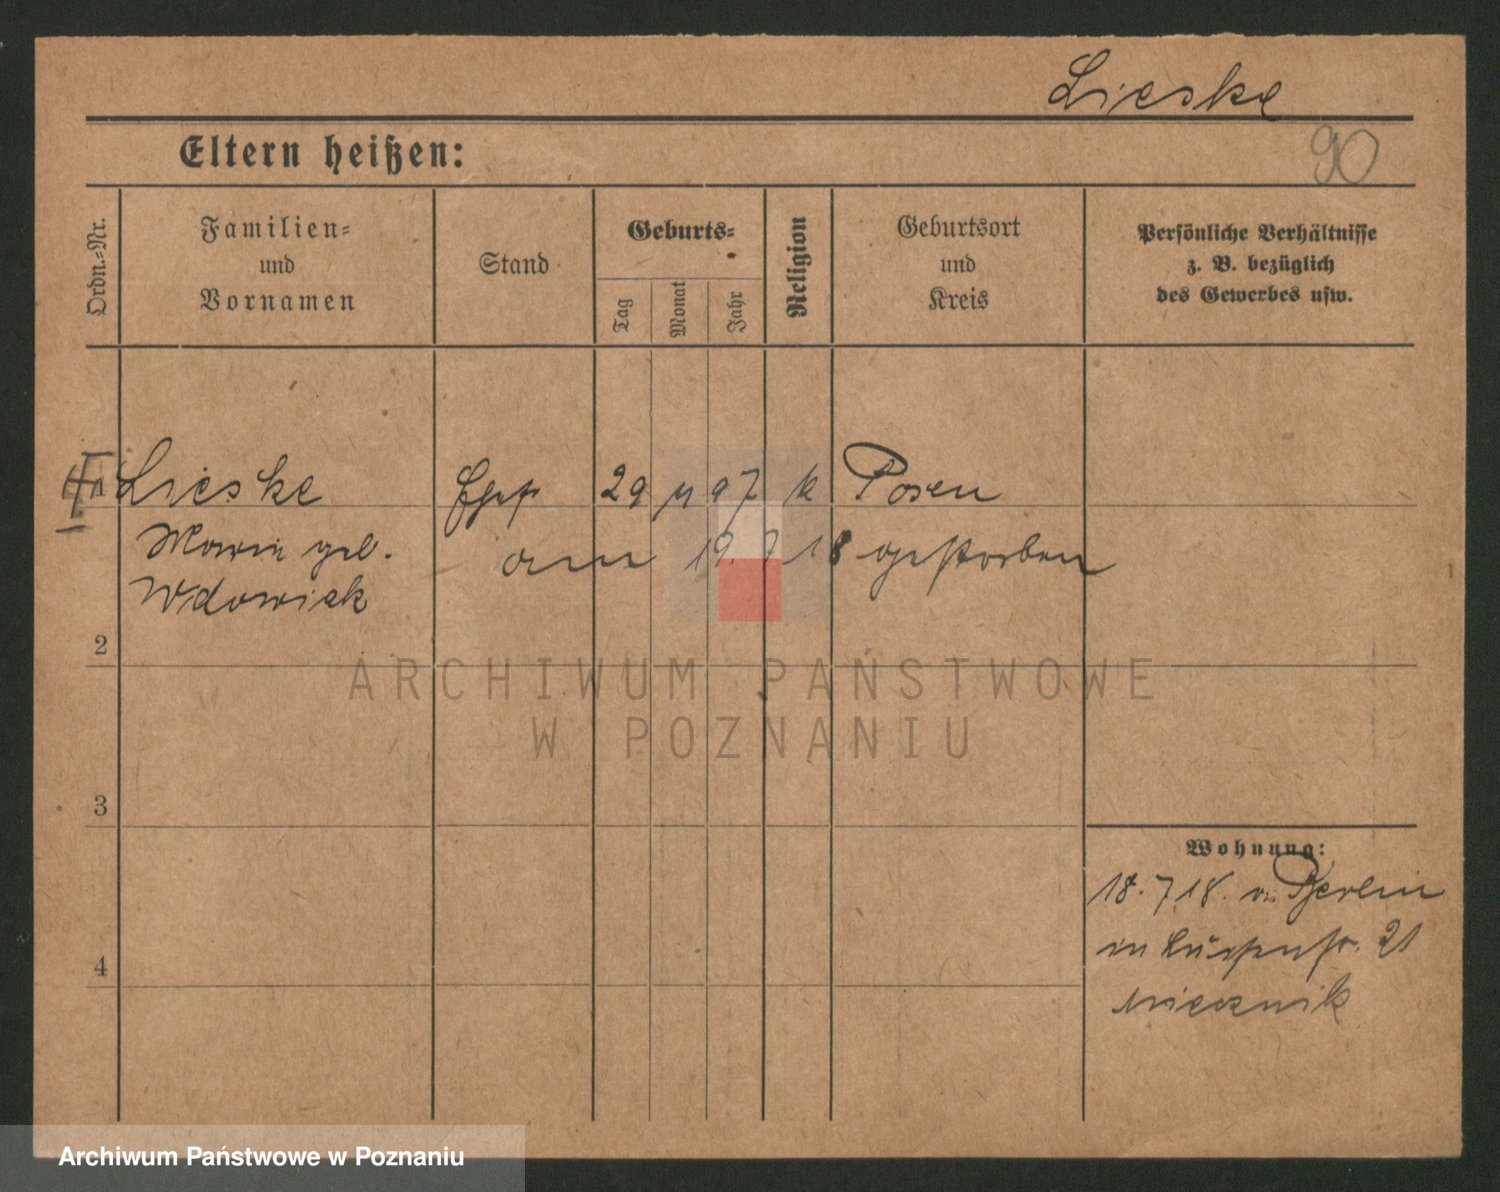 Lieske
90
Eltern heißen:
Ordn.-Nr.
Familien-
und
Vornamen
Stand
Geburts-
Tag
Monat
Jahr
Religion
Geburtsort
und
Kreis
Persönliche Verhältnisse
z. B. bezüglich
des Gewerbes usw.
1 Lieske Ehefr 29 11 97 k Posen
Maria geb. am 19. 7 18 gestorben
Wdowiak
2
ARCHIWUM PAŃSTWOWE
W POZNANIU
3
Wohnung:
18. 7 18. v. Berlin
in 21
4
Miecznik
Archiwum Państwowe w Poznaniu